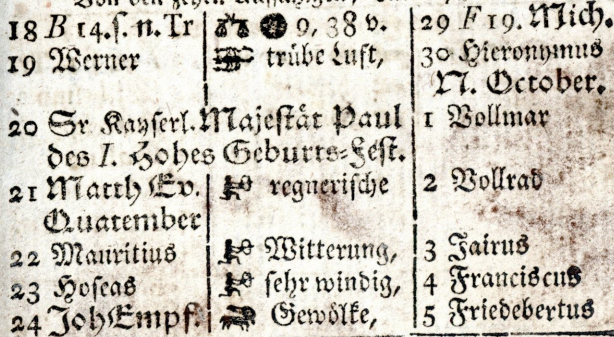 18 B 14. s. n. Tr 9, 38 v. 29 F 19. Mich.
19 Werner trübe Luft, 30 Hieronymus
N. October.
20 Sr Kayserl. Majestät Paul 1 Vollmar
des I. Hohes Geburts-Fest.
21 Matth Ev. regnerische 2 Vollrad
Quatember
22 Mauritius Witterung, 3 Jairus
23 Hoseas sehr windig, 4 Franciscus
24 Joh Empf. Gewölke, 5 Friedebertus